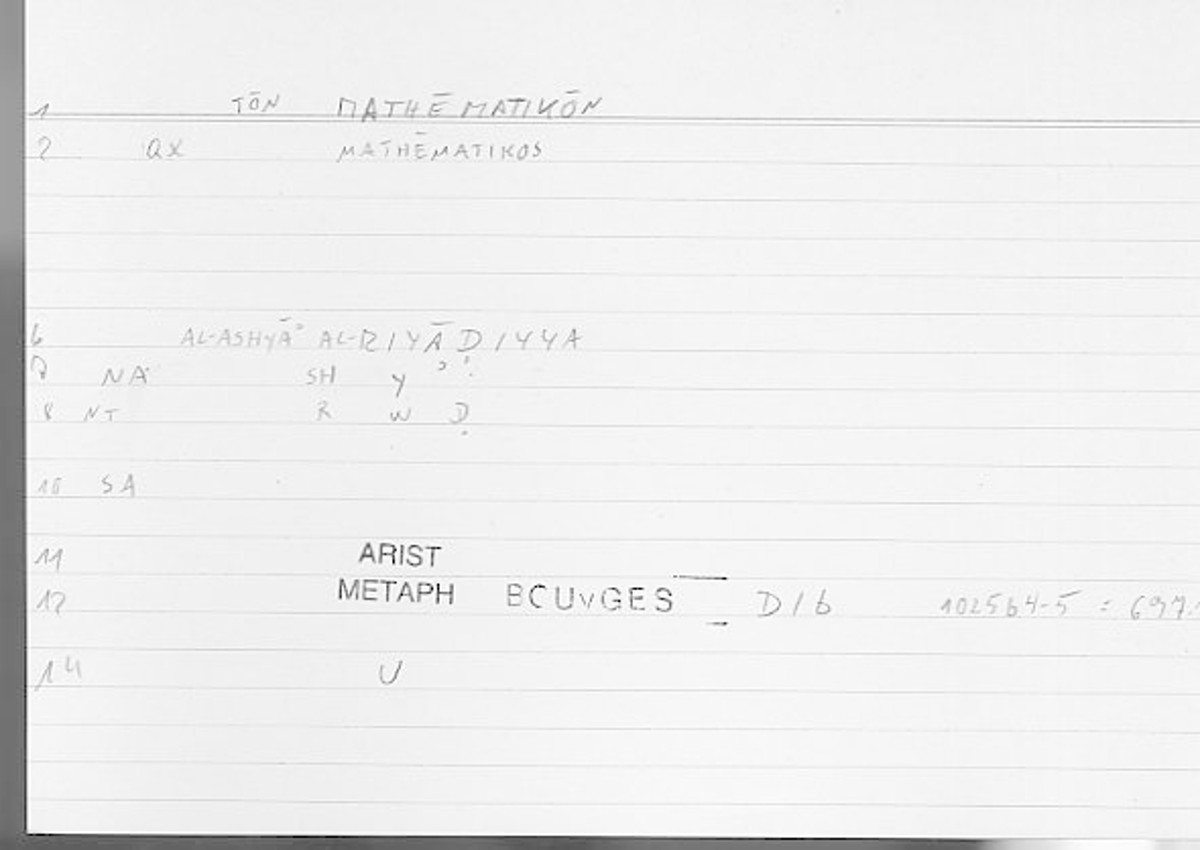 1 TŌN MATHĒMATIKŌN
2 QX MATHĒMATIKOS
6 AL-ASHYĀʾ AL-RIYĀḌIYYA
7 NA SH Y ʾ
8 NT R W Ḍ
10 SA
11 ARIST
12 METAPH BOUYGES D16 1025b4-5 : 697.
14 U